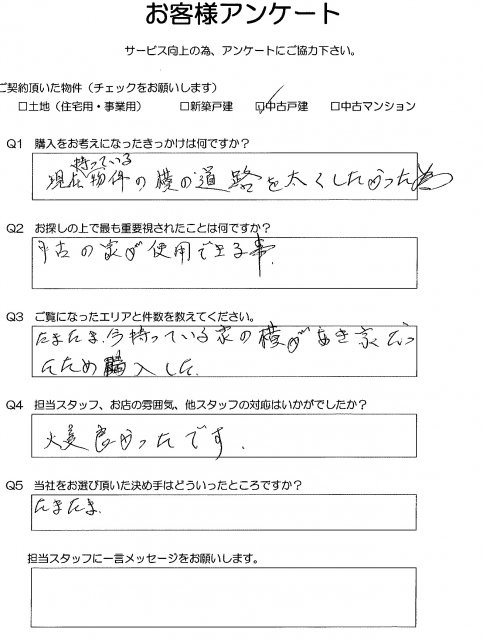 お客様アンケート
サービス向上の為、アンケートにご協力下さい。
ご契約頂いた物件（チェックをお願いします）
□土地（住宅用・事業用） □新築戸建 ☑中古戸建 □中古マンション
Q1 購入をお考えになったきっかけは何ですか？
現在持っている物件の横の道路を太くしたかった為
Q2 お探しの上で最も重要視されたことは何ですか？
中古の家が使用できる事.
Q3 ご覧になったエリアと件数を教えてください。
たまたま.今持っている家の横があき家だっ
たため購入した.
Q4 担当スタッフ、お店の雰囲気、他スタッフの対応はいかがでしたか？
大変良かったです.
Q5 当社をお選び頂いた決め手はどういったところですか？
たまたま.
担当スタッフに一言メッセージをお願いします。